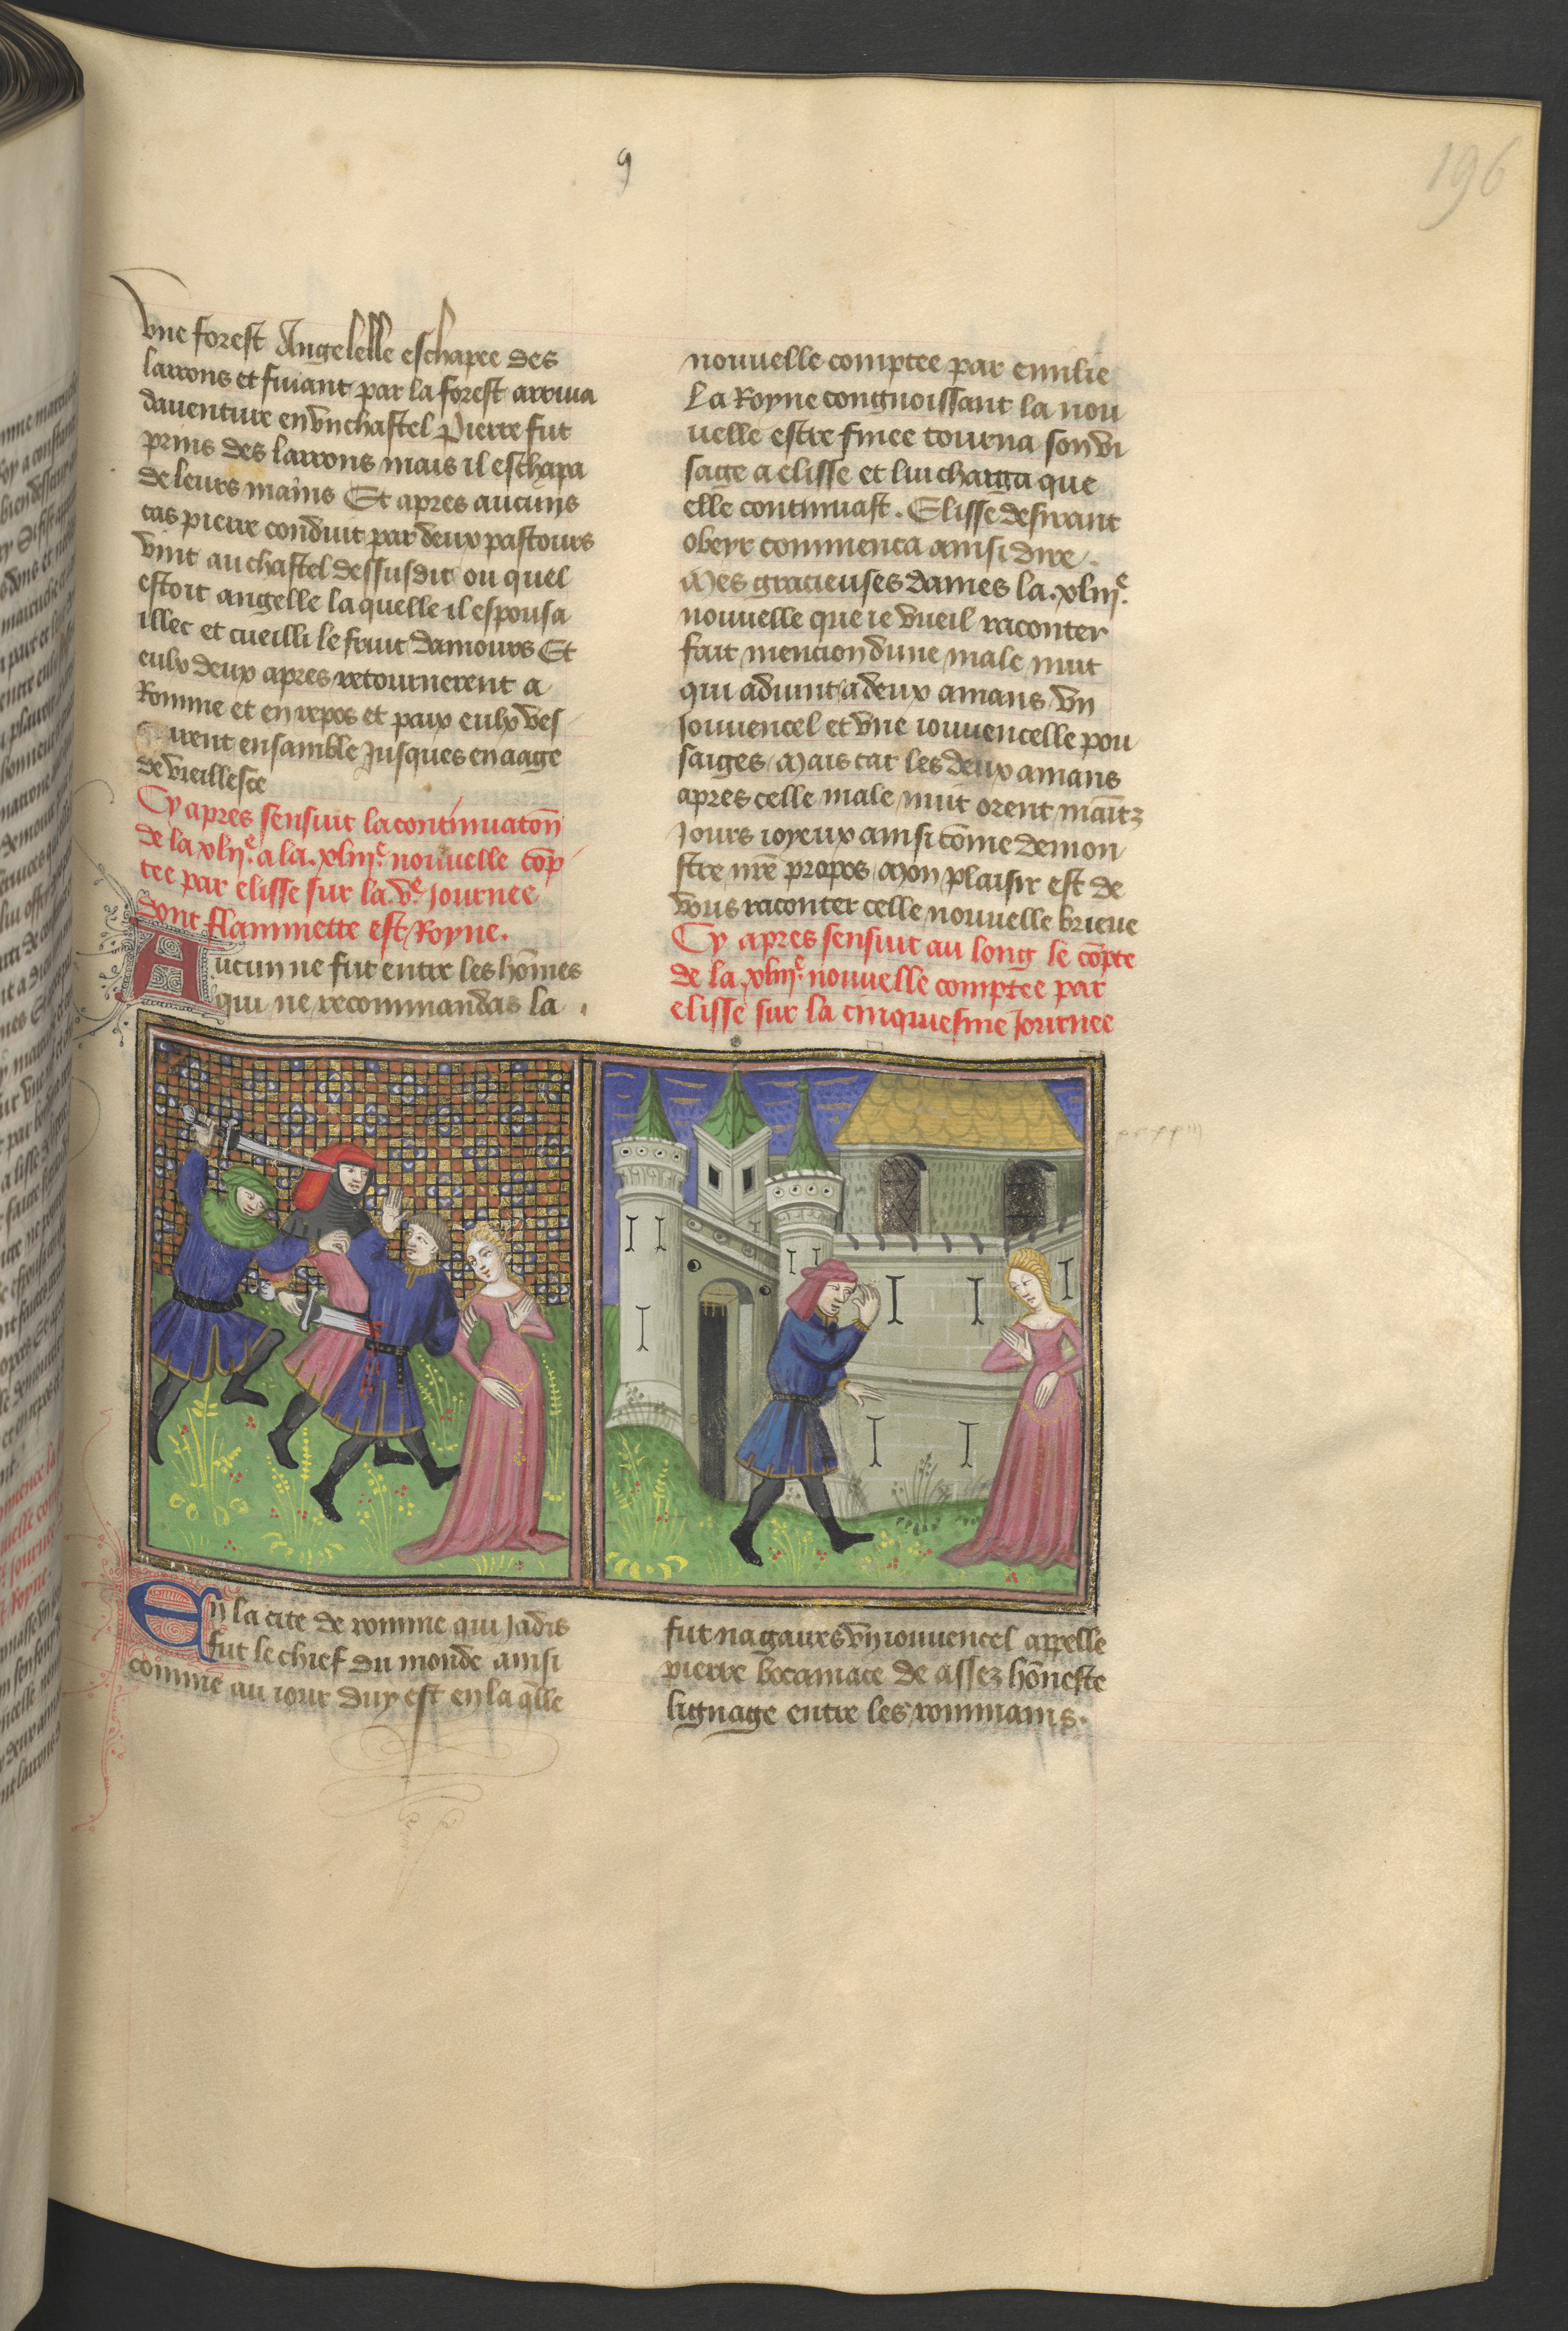 9
196
vne forest Angelelle eschapee des
larrons et fuiant par la forest arriua
dauenture en vn chastel Pierre fut
prins des larrons mais il eschapa
de leurs mains Et apres aucuns
cas pierre conduit par deux pastours
vint au chastel dessusdit ou quel
estoit angelle la quelle il espousa
illec et cueilli le fruit damours Et
eulx deux apres retournerent a
Romme et en repos et paix eulx ves
quirent ensamble Jusques en aage
de vieillesce
Cy apres sensuit la continuatōn
de la xlij.e a la .xliij.e nouuelle cōp
tee par elisse sur la .v.e Journee
dont flammette est Royne.
Aucun ne fut entre les hōmes
qui ne recommandas la
nouuelle comptee par emilie
La Royne congnoissant la nou
uelle estre finee tourna son vi
sage a elisse et lui charga que
elle continuast. Elisse desirant
obeyr commenca ainsi dire.
Mes gracieuses dames la .xliij.e
nouuelle que ie vueil raconter
fait mencion dune male nuit
qui aduint a deux amans vn
Jouuencel et vne iouuencelle pou
saiges Mais car les deux amans
apres celle male nuit orent maītz
Jours ioyeux ainsi cōme demon
stre nr̄e propos Mon plaisir est de
vous raconter celle nouuelle brieue
Cy apres sensuit au long le cōpte
de la .xliij.e nouuelle comptee par
elisse sur la cinquiesme Journee
En la cite de romme qui Jadis
fut le chief du monde ainsi
comme au iour duy est en la q̄lle
fut nagaires vn iouuencel appelle
pierre bocamace de assez hōneste
lignage entre les rommains.